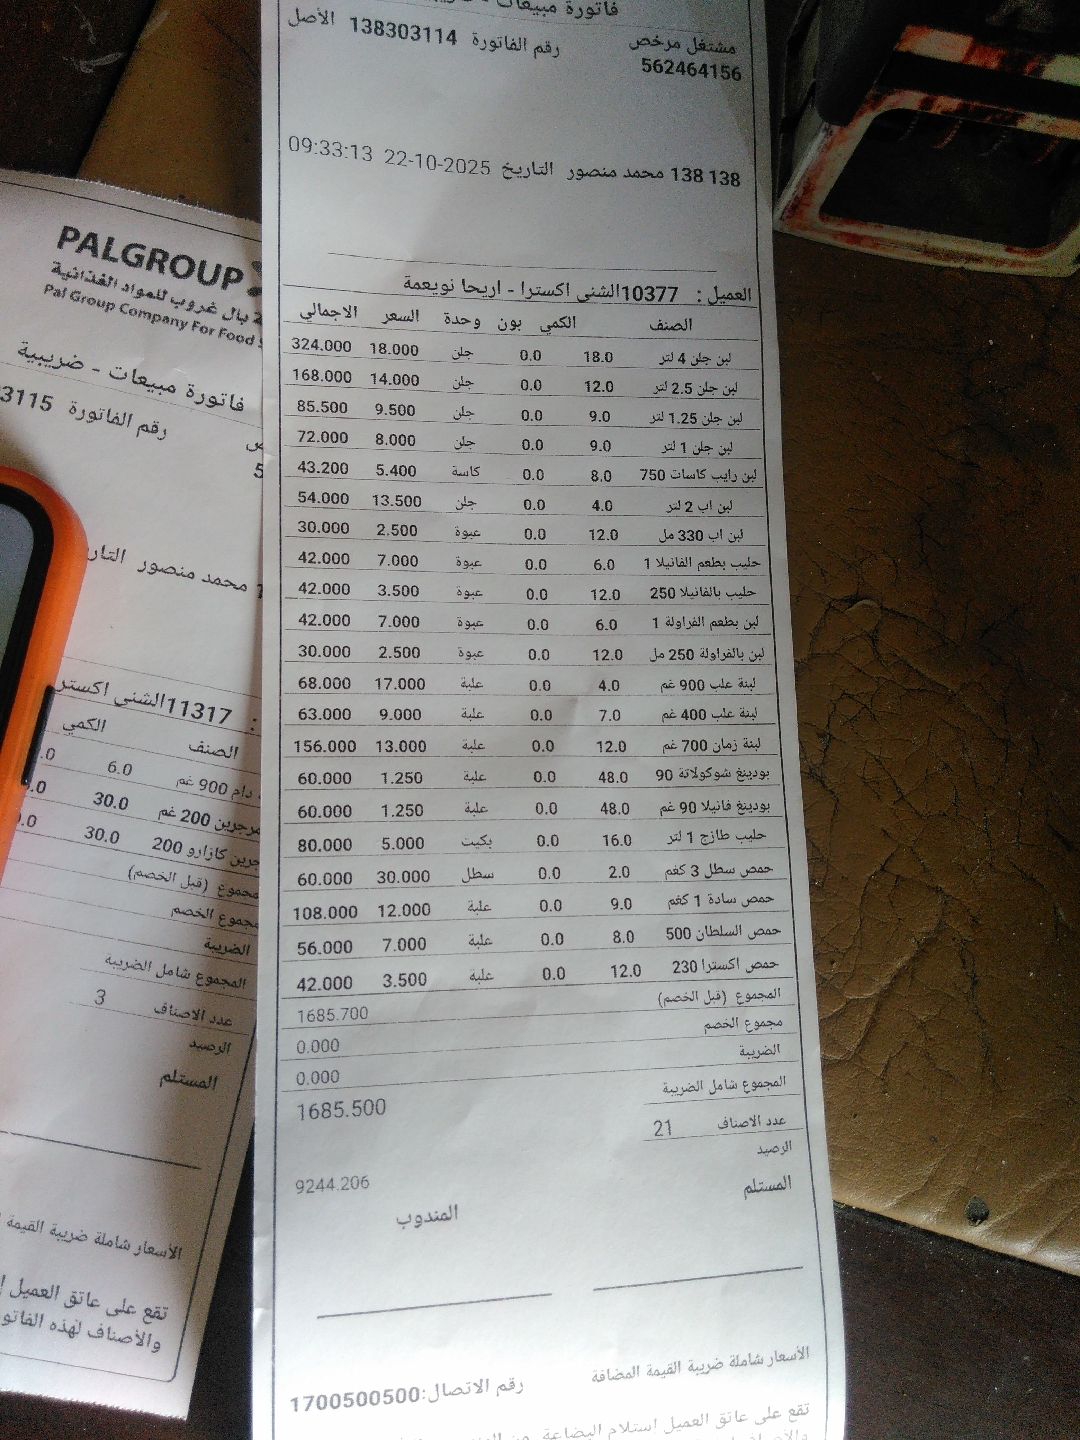 فاتورة مبيعات - ضريبية
مشتغل مرخص رقم الفاتورة 138303114 الأصل
562464156
138 138 محمد منصور التاريخ 22-10-2025 09:33:13
العميل : 10377 الشنى اكسترا - اريحا نويعمة
الصنف الكمي بون وحدة السعر الاجمالي
لبن جلن 4 لتر 18.0 0.0 جلن 18.000 324.000
لبن جلن 2.5 لتر 12.0 0.0 جلن 14.000 168.000
لبن جلن 1.25 لتر 9.0 0.0 جلن 9.500 85.500
لبن جلن 1 لتر 9.0 0.0 جلن 8.000 72.000
لبن رايب كاسات 750 8.0 0.0 كاسة 5.400 43.200
لبن اب 2 لتر 4.0 0.0 جلن 13.500 54.000
لبن اب 330 مل 12.0 0.0 عبوة 2.500 30.000
حليب بطعم الفانيلا 1 6.0 0.0 عبوة 7.000 42.000
حليب بالفانيلا 250 12.0 0.0 عبوة 3.500 42.000
لبن بطعم الفراولة 1 6.0 0.0 عبوة 7.000 42.000
لبن بالفراولة 250 مل 12.0 0.0 عبوة 2.500 30.000
لبنة علب 900 غم 4.0 0.0 علبة 17.000 68.000
لبنة علب 400 غم 7.0 0.0 علبة 9.000 63.000
لبنة زمان 700 غم 12.0 0.0 علبة 13.000 156.000
بودينغ شوكولاتة 90 48.0 0.0 علبة 1.250 60.000
بودينغ فانيلا 90 غم 48.0 0.0 علبة 1.250 60.000
حليب طازج 1 لتر 16.0 0.0 بكيت 5.000 80.000
حمص سطل 3 كغم 2.0 0.0 سطل 30.000 60.000
حمص سادة 1 كغم 9.0 0.0 علبة 12.000 108.000
حمص السلطان 500 8.0 0.0 علبة 7.000 56.000
حمص اكسترا 230 12.0 0.0 علبة 3.500 42.000
المجموع (قبل الخصم) 1685.700
مجموع الخصم 0.000
الضريبة 0.000
المجموع شامل الضريبة 1685.500
عدد الاصناف 21
الرصيد 9244.206
المستلم المندوب
الأسعار شاملة ضريبة القيمة المضافة
رقم الاتصال:1700500500
تقع على عاتق العميل إستلام البضاعة
PALGROUP
بال غروب للمواد الغذائية
Pal Group Company For Food
فاتورة مبيعات - ضريبية
رقم الفاتورة 3115
5
محمد منصور التار
: 11317 الشنى اكستر
الصنف الكمي
دام 900 غم 6.0 .0
مرجرين 200 غم 30.0 .0
جرين كازارو 200 30.0 .0
مجموع (قبل الخصم)
مجموع الخصم
الضريبة
المجموع شامل الضريبة
عدد الاصناف 3
الرصيد
المستلم
الأسعار شاملة ضريبة القيمة
تقع على عاتق العميل إ
والأصناف لهذه الفاتو